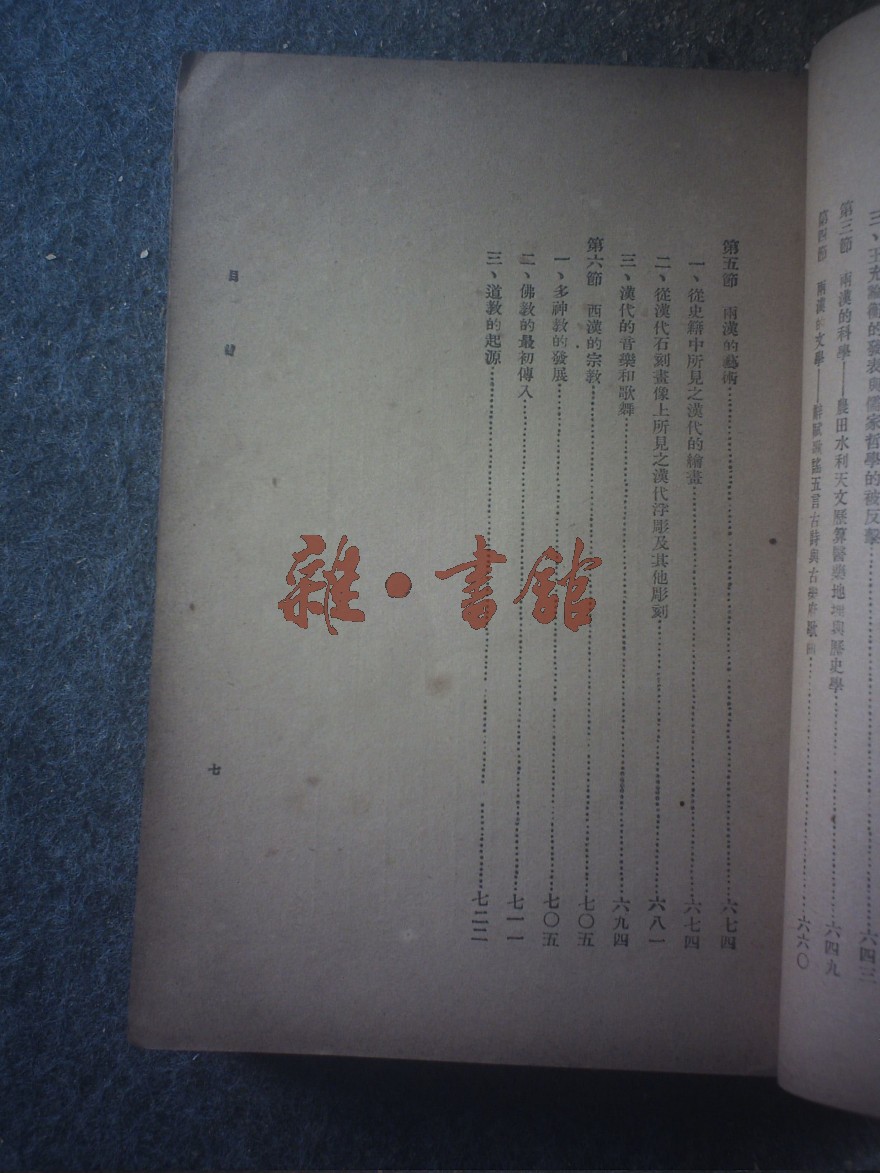 三、王充論衡的發表與儒家哲學的被反擊……六四三
第三節 兩漢的科學——農田水利天文厤算醫藥地理與歷史學……六四九
第四節 兩漢的文學——辭賦歌謠五言古詩與古樂府歌曲……六六〇
第五節 兩漢的藝術……六七四
一、從史籍中所見之漢代的繪畫……六七四
二、從漢代石刻畫像上所見之漢代浮彫及其他彫刻……六八一
三、漢代的音樂和歌舞……六九四
第六節 西漢的宗教……七〇五
一、多神教的發展……七〇五
二、佛教的最初傳入……七一一
三、道教的起源……七二二
目
七
雜·書館